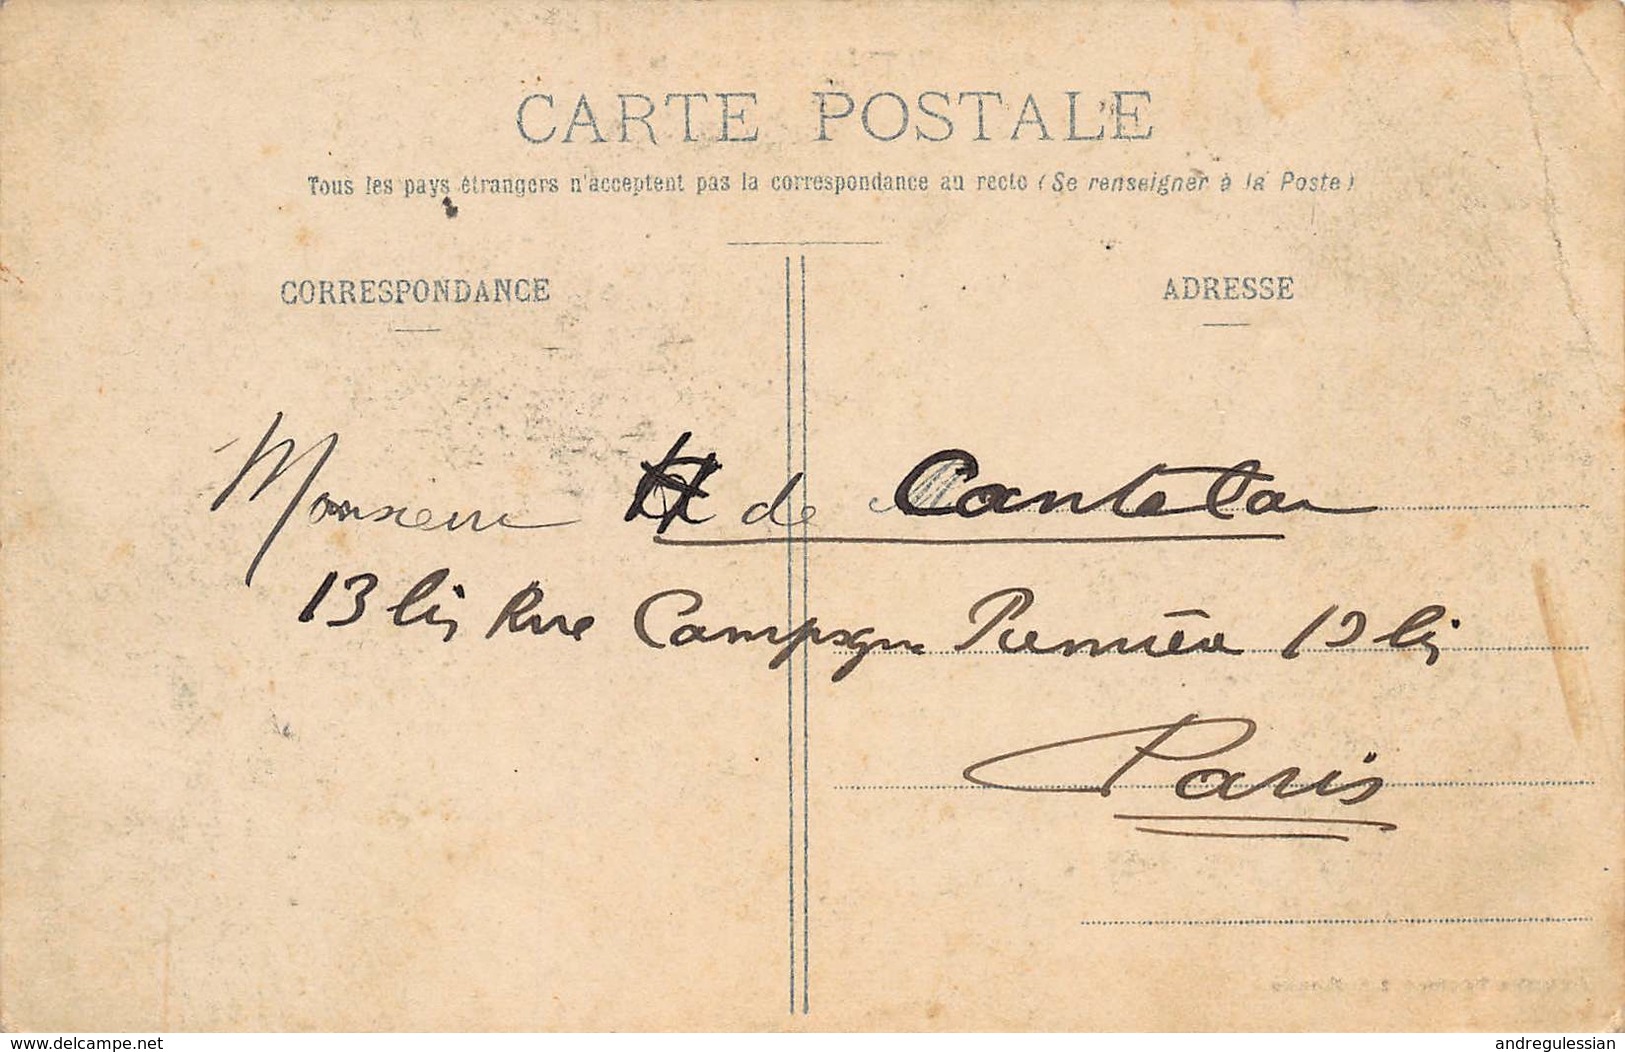 CARTE POSTALE
Tous les pays étrangers n'acceptent pas la correspondance au recto (Se renseigner à la Poste)
CORRESPONDANCE
ADRESSE
Monsieur H de Cantelar
13 bis Rue Campagne Première 13 bis
Paris
www.delcampe.net
andregulessian